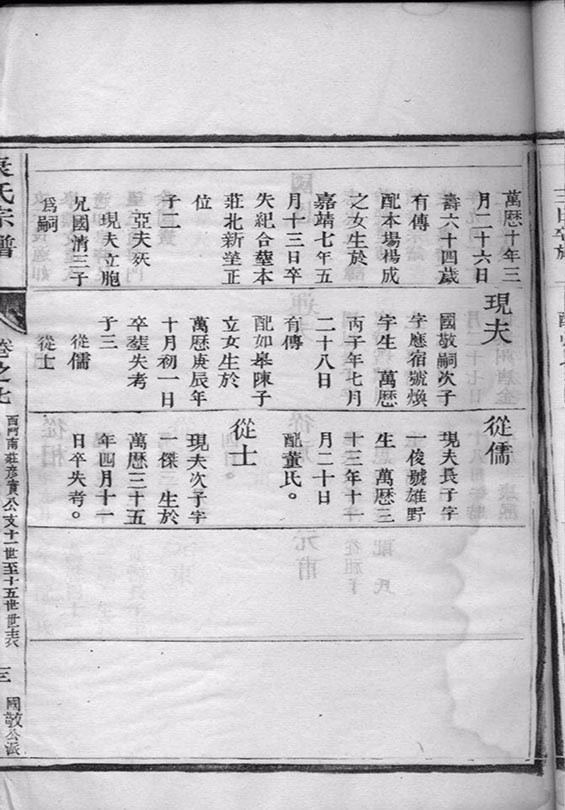 萬歷十年三
月二十六日
壽六十四歲
有傳
配本場楊成
之女生於
嘉靖七年五
月十三日卒
失紀合塟本
莊北新塋正
位
子二
亞夫殀
現夫立胞
兄國清三子
爲嗣
現夫
國敬嗣次子
字應宿號煥
字生 萬歷
丙子年七月
二十八日
有傳
配如皋陳子
立女生於
萬歷庚辰年
十月初一日
卒塟失考
子三
從儒
從士
從儒
現夫長子字
一俊號雄野
生 萬歷三
十三年十
月二十日
配董氏。
從士
現夫次子字
一傑 生於
萬歷三十五
年四月十一
日卒失考。
袁氏宗譜
卷之七
西門南莊彥實公支十一世至十五世世表
三
國敬公派